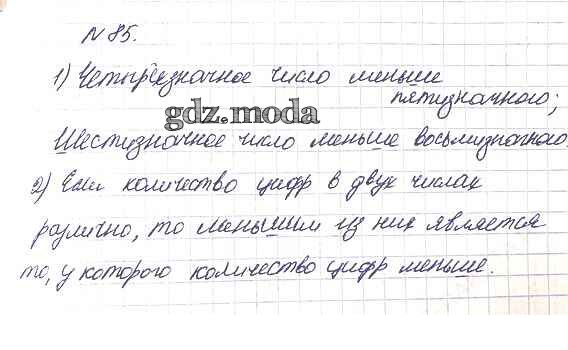 N 85.
1) Четырёхзначное число меньше
пятизначного;
gdz.moda
Шестизначное число меньше восьмизначного.
2) Если количество цифр в двух числах
различно, то меньшим из них является
то, у которого количество цифр меньше.